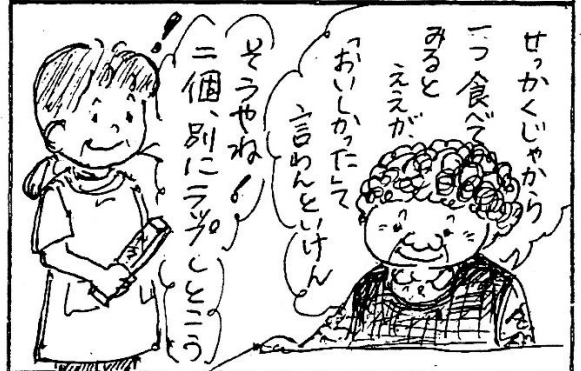 せっかくじゃから
一つ食べて
みると
ええが、
「おいしかった」て
言わんといけん
そうやね!
二個、別にラップしとこう
!